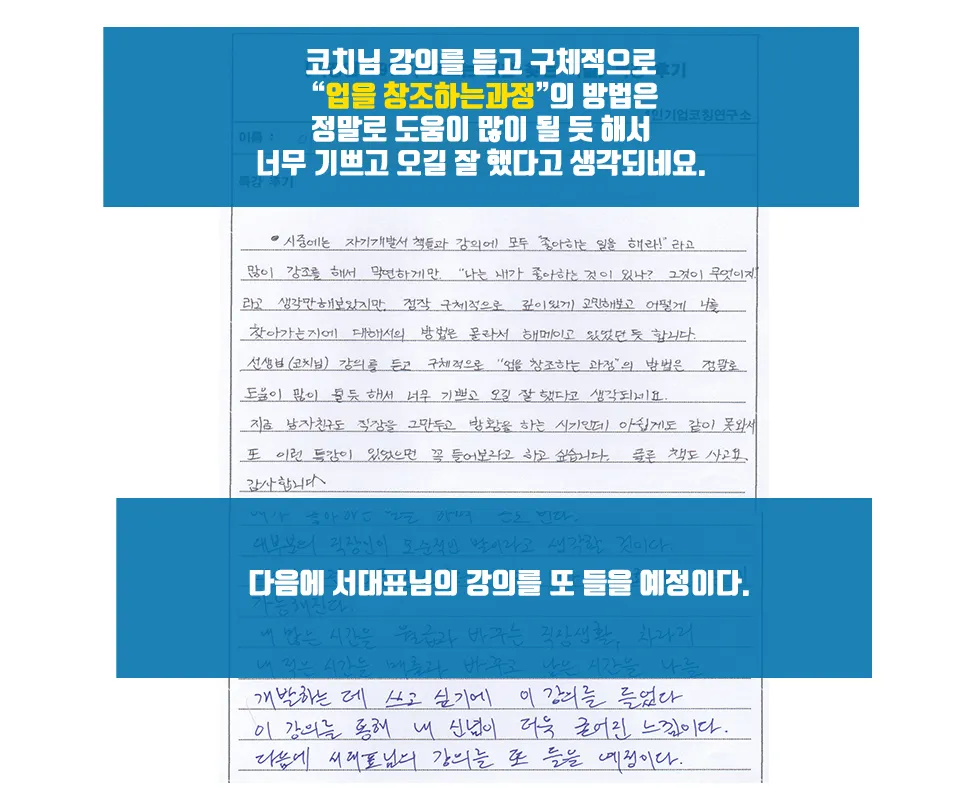 코치님 강의를 듣고 구체적으로
“업을 창조하는과정”의 방법은
정말로 도움이 많이 될 듯 해서
너무 기쁘고 오길 잘 했다고 생각되네요.
후기
기업코칭연구소
이름 :
특강 후기
• 시중에는 자기개발서 책들과 강의에 모두 "좋아하는 일을 해라!" 라고
많이 강조를 해서 막연하게만. "나는 내가 좋아하는 것이 있나? 그것이 무엇이지?
라고 생각만해보았지만, 정작 구체적으로 깊이있게 고민해보고 어떻게 나를
찾아가는지에 대해서의 방법은 몰라서 헤메이고 있었던 듯 합니다.
선생님(코치님) 강의를 듣고 구체적으로 "업을 창조하는 과정"의 방법은 정말로
도움이 많이 될듯 해서 너무 기쁘고 오길 잘 했다고 생각되네요.
지금 남자친구도 직장을 그만두고 방황을 하는 시기인데 아쉽게도 같이 못와서
또 이런 특강이 있었으면 꼭 들어보라고 하고 싶습니다. 물론 책도 사고요.
감사합니다
내가 좋아하는 일을 하며 돈도 번다.
대부분의 직장인이 모순적인 말이라고 생각할 것이다.
다음에 서대표님의 강의를 또 들을 예정이다.
가능해진다.
내 많은 시간을 월급과 바꾸는 직장생활, 차라리
내 적은 시간을 매출과 바꾸고 남은 시간을 나를
개발하는 데 쓰고 싶기에 이 강의를 들었다
이 강의를 통해 내 신념이 더욱 굳어진 느낌이다.
다음에 서대표님의 강의를 또 들을 예정이다.